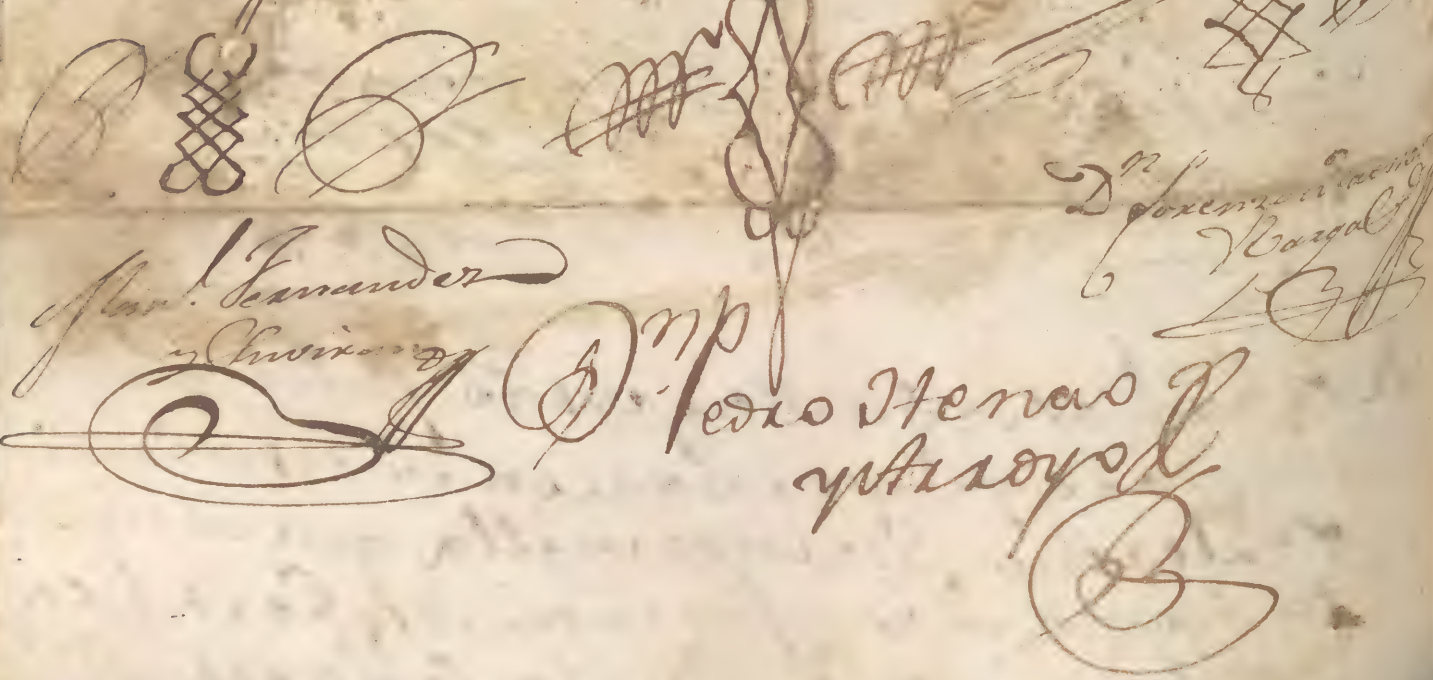 Dn Lorenzo
Vargas
Man.l Fernandez
y
Dn Pedro Henao
y Arroyo